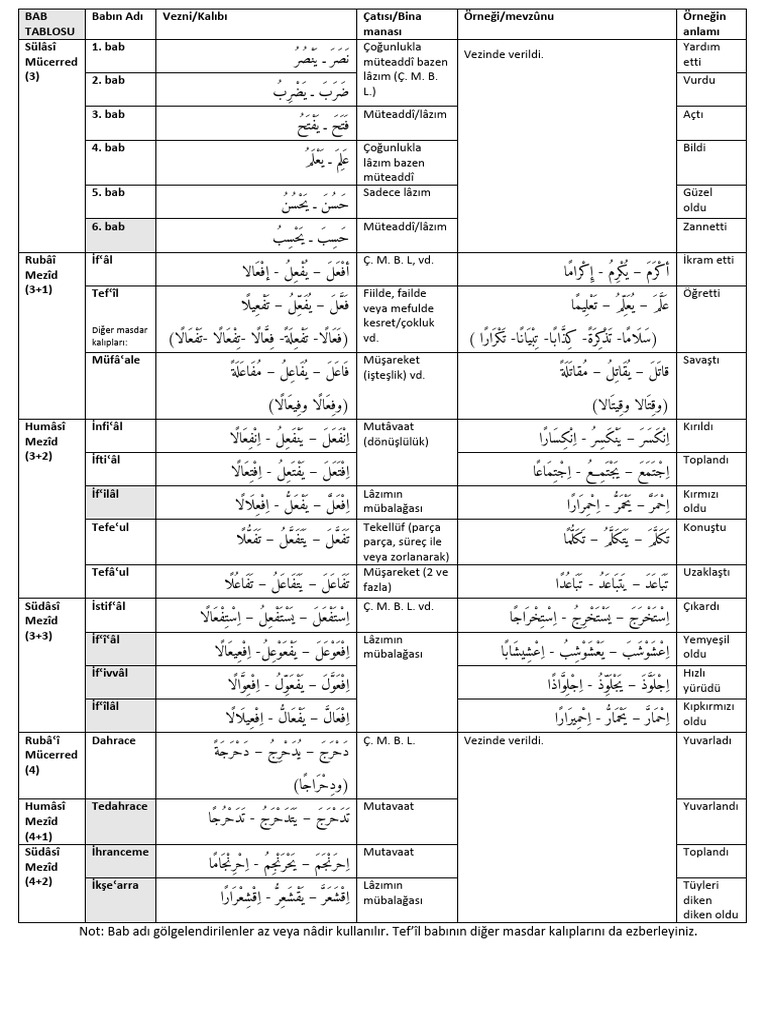 BAB TABLOSU | Babın Adı | Vezni/Kalıbı | Çatısı/Bina manası | Örneği/mevzûnu | Örneğin anlamı
Sülâsî Mücerred (3) | 1. bab | نَصَرَ ـ يَنْصُرُ | Çoğunlukla müteaddî bazen lâzım (Ç. M. B. L.) | Vezinde verildi. | Yardım etti
2. bab | ضَرَبَ ـ يَضْرِبُ | Vurdu
3. bab | فَتَحَ ـ يَفْتَحُ | Müteaddî/lâzım | Açtı
4. bab | عَلِمَ ـ يَعْلَمُ | Çoğunlukla lâzım bazen müteaddî | Bildi
5. bab | حَسُنَ ـ يَحْسُنُ | Sadece lâzım | Güzel oldu
6. bab | حَسِبَ ـ يَحْسِبُ | Müteaddî/lâzım | Zannetti
Rubâî Mezîd (3+1) | İf‘âl | أَفْعَلَ – يُفْعِلُ - إِفْعَالا | Ç. M. B. L, vd. | أَكْرَمَ – يُكْرِمُ - إِكْرامًا | İkram etti
Tef‘îl | فَعَّلَ – يُفَعِّلُ – تَفْعِيلًا | Fiilde, failde veya mefulde kesret/çokluk vd. | عَلَّمَ – يُعَلِّمُ – تَعْلِيمًا | Öğretti
Diğer masdar kalıpları: | (فَعَالًا- تَفْعِلَةً- فِعَّالًا -تِفْعَالًا -تَفْعَالًا) | (سَلَامًا- تَذْكِرَةً- كِذَّابًا- تِبْيَانًا- تَكْرَارًا )
Müfâ‘ale | فَاعَلَ – يُفَاعِلُ – مُفَاعَلَةً | Müşareket (işteşlik) vd. | قاتَلَ – يُقَاتِلُ – مُقاتَلَةً | Savaştı
(وفِعَالًا وفِيعَالًا) | (وقِتَالا وقِيتَالا)
Humâsî Mezîd (3+2) | İnfi‘âl | اِنْفَعَلَ – يَنْفَعِلُ - اِنْفِعَالًا | Mutâvaat (dönüşlülük) | اِنْكَسَرَ – يَنْكَسِرُ - اِنْكِسَارًا | Kırıldı
İfti‘âl | اِفْتَعَلَ – يَفْتَعِلُ - اِفْتِعَالًا | اِجْتَمَعَ – يَجْتَمِعُ - اِجْتِمَاعًا | Toplandı
İf‘ilâl | اِفْعَلَّ – يَفْعَلُّ - اِفْعِلَالًا | Lâzımın mübalağası | اِحْمَرَّ – يَحْمَرُّ - اِحْمِرَارًا | Kırmızı oldu
Tefe‘ul | تَفَعَّلَ – يَتَفَعَّلُ – تَفَعُّلًا | Tekellüf (parça parça, süreç ile veya zorlanarak) | تَكَلَّمَ – يَتَكَلَّمُ – تَكَلُّمًا | Konuştu
Tefâ‘ul | تَفَاعَلَ – يَتَفَاعَلُ – تَفَاعُلًا | Müşareket (2 ve fazla) | تَبَاعَدَ – يَتَبَاعَدُ - تَبَاعُدًا | Uzaklaştı
Südâsî Mezîd (3+3) | İstif‘âl | اِسْتَفْعَلَ – يَسْتَفْعِلُ - اِسْتِفْعَالًا | Ç. M. B. L. vd. | اِسْتَخْرَجَ – يَسْتَخْرِجُ - اِسْتِخْرَاجًا | Çıkardı
İf‘î‘âl | اِفْعَوْعَلَ – يَفْعَوْعِلُ- اِفْعِيعَالًا | Lâzımın mübalağası | اِعْشَوْشَبَ – يَعْشَوْشِبُ - اِعْشِيشَابًا | Yemyeşil oldu
İf‘ivvâl | اِفْعَوَّلَ – يَفْعَوِّلُ - اِفْعِوَّالًا | اِجْلَوَّذَ – يَجْلَوِّذُ - اِجْلِوَّاذًا | Hızlı yürüdü
İf‘îlâl | اِفْعَالَّ – يَفْعَالُّ - اِفْعِيلَالًا | اِحْمَارَّ – يَحْمَارُّ - اِحْمِيرَارًا | Kıpkırmızı oldu
Rubâ‘î Mücerred (4) | Dahrace | دَحْرَجَ – يُدَحْرِجُ – دَحْرَجَةً | Ç. M. B. L. | Vezinde verildi. | Yuvarladı
(ودِحْرَاجًا)
Humâsî Mezîd (4+1) | Tedahrace | تَدَحْرَجَ – يَتَدَحْرَجُ - تَدَحْرُجًا | Mutavaat | Yuvarlandı
Südâsî Mezîd (4+2) | İhranceme | اِحْرَنْجَمَ – يَحْرَنْجِمُ - اِحْرِنْجَامًا | Mutavaat | Toplandı
İkşe‘arra | اِقْشَعَرَّ – يَقْشَعِرُّ - اِقْشِعْرَارًا | Lâzımın mübalağası | Tüyleri diken diken oldu
Not: Bab adı gölgelendirilenler az veya nâdir kullanılır. Tef‘îl babının diğer masdar kalıplarını da ezberleyiniz.